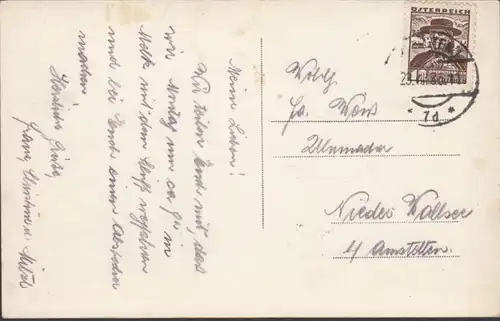 Meine Lieben!
Wir teilen Euch mit, dass
wir Montag um ca. 9h in
Melk mit dem Schiff wegfahren
und bei Euch einen Abstecher
machen
Herzliche Grüße
Franz
ÖSTERREICH
23.VII.36.11
* 7d *
Wolf
Fa.
Nieder Wallsee
b/ Amstetten.